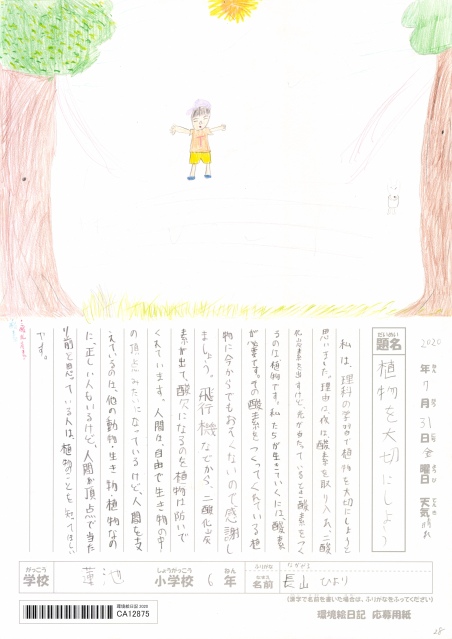 2020年7月31日金曜日 天気 晴れ
だいめい
題名
植物を大切にしよう
私は、理科の学習で植物を大切にしようと
思いました。理由は、夜は、酸素を取り入れ、二酸
化炭素を出すけど、光が当たっているとき酸素をつく
るのは植物です。私たちが生きていくには、酸素
が必要です。その酸素をつくってくれている植
物に今からでもおそくないので感謝し
ましょう。飛行機などから、二酸化炭
素が出て、酸欠になるのを植物は防いで
くれています。人間は、自由で生き物の中
の頂点みたいになっているけど、人間を支
えているのは、他の動物・生き物・植物なの
に、正しい人もいるけど、人間が頂点で当た
り前と思っている人は、植物のことを知ってほしい
です。
がっこう
学校
蓮池
しょうがっこう
小学校
6
ねん
年
ふりがな
ながやま
なまえ
名前
長山 ひより
(漢字で名前を書いた場合は、ふりがなをふってください)
環境絵日記 2020
CA12875
環境絵日記 応募用紙
28